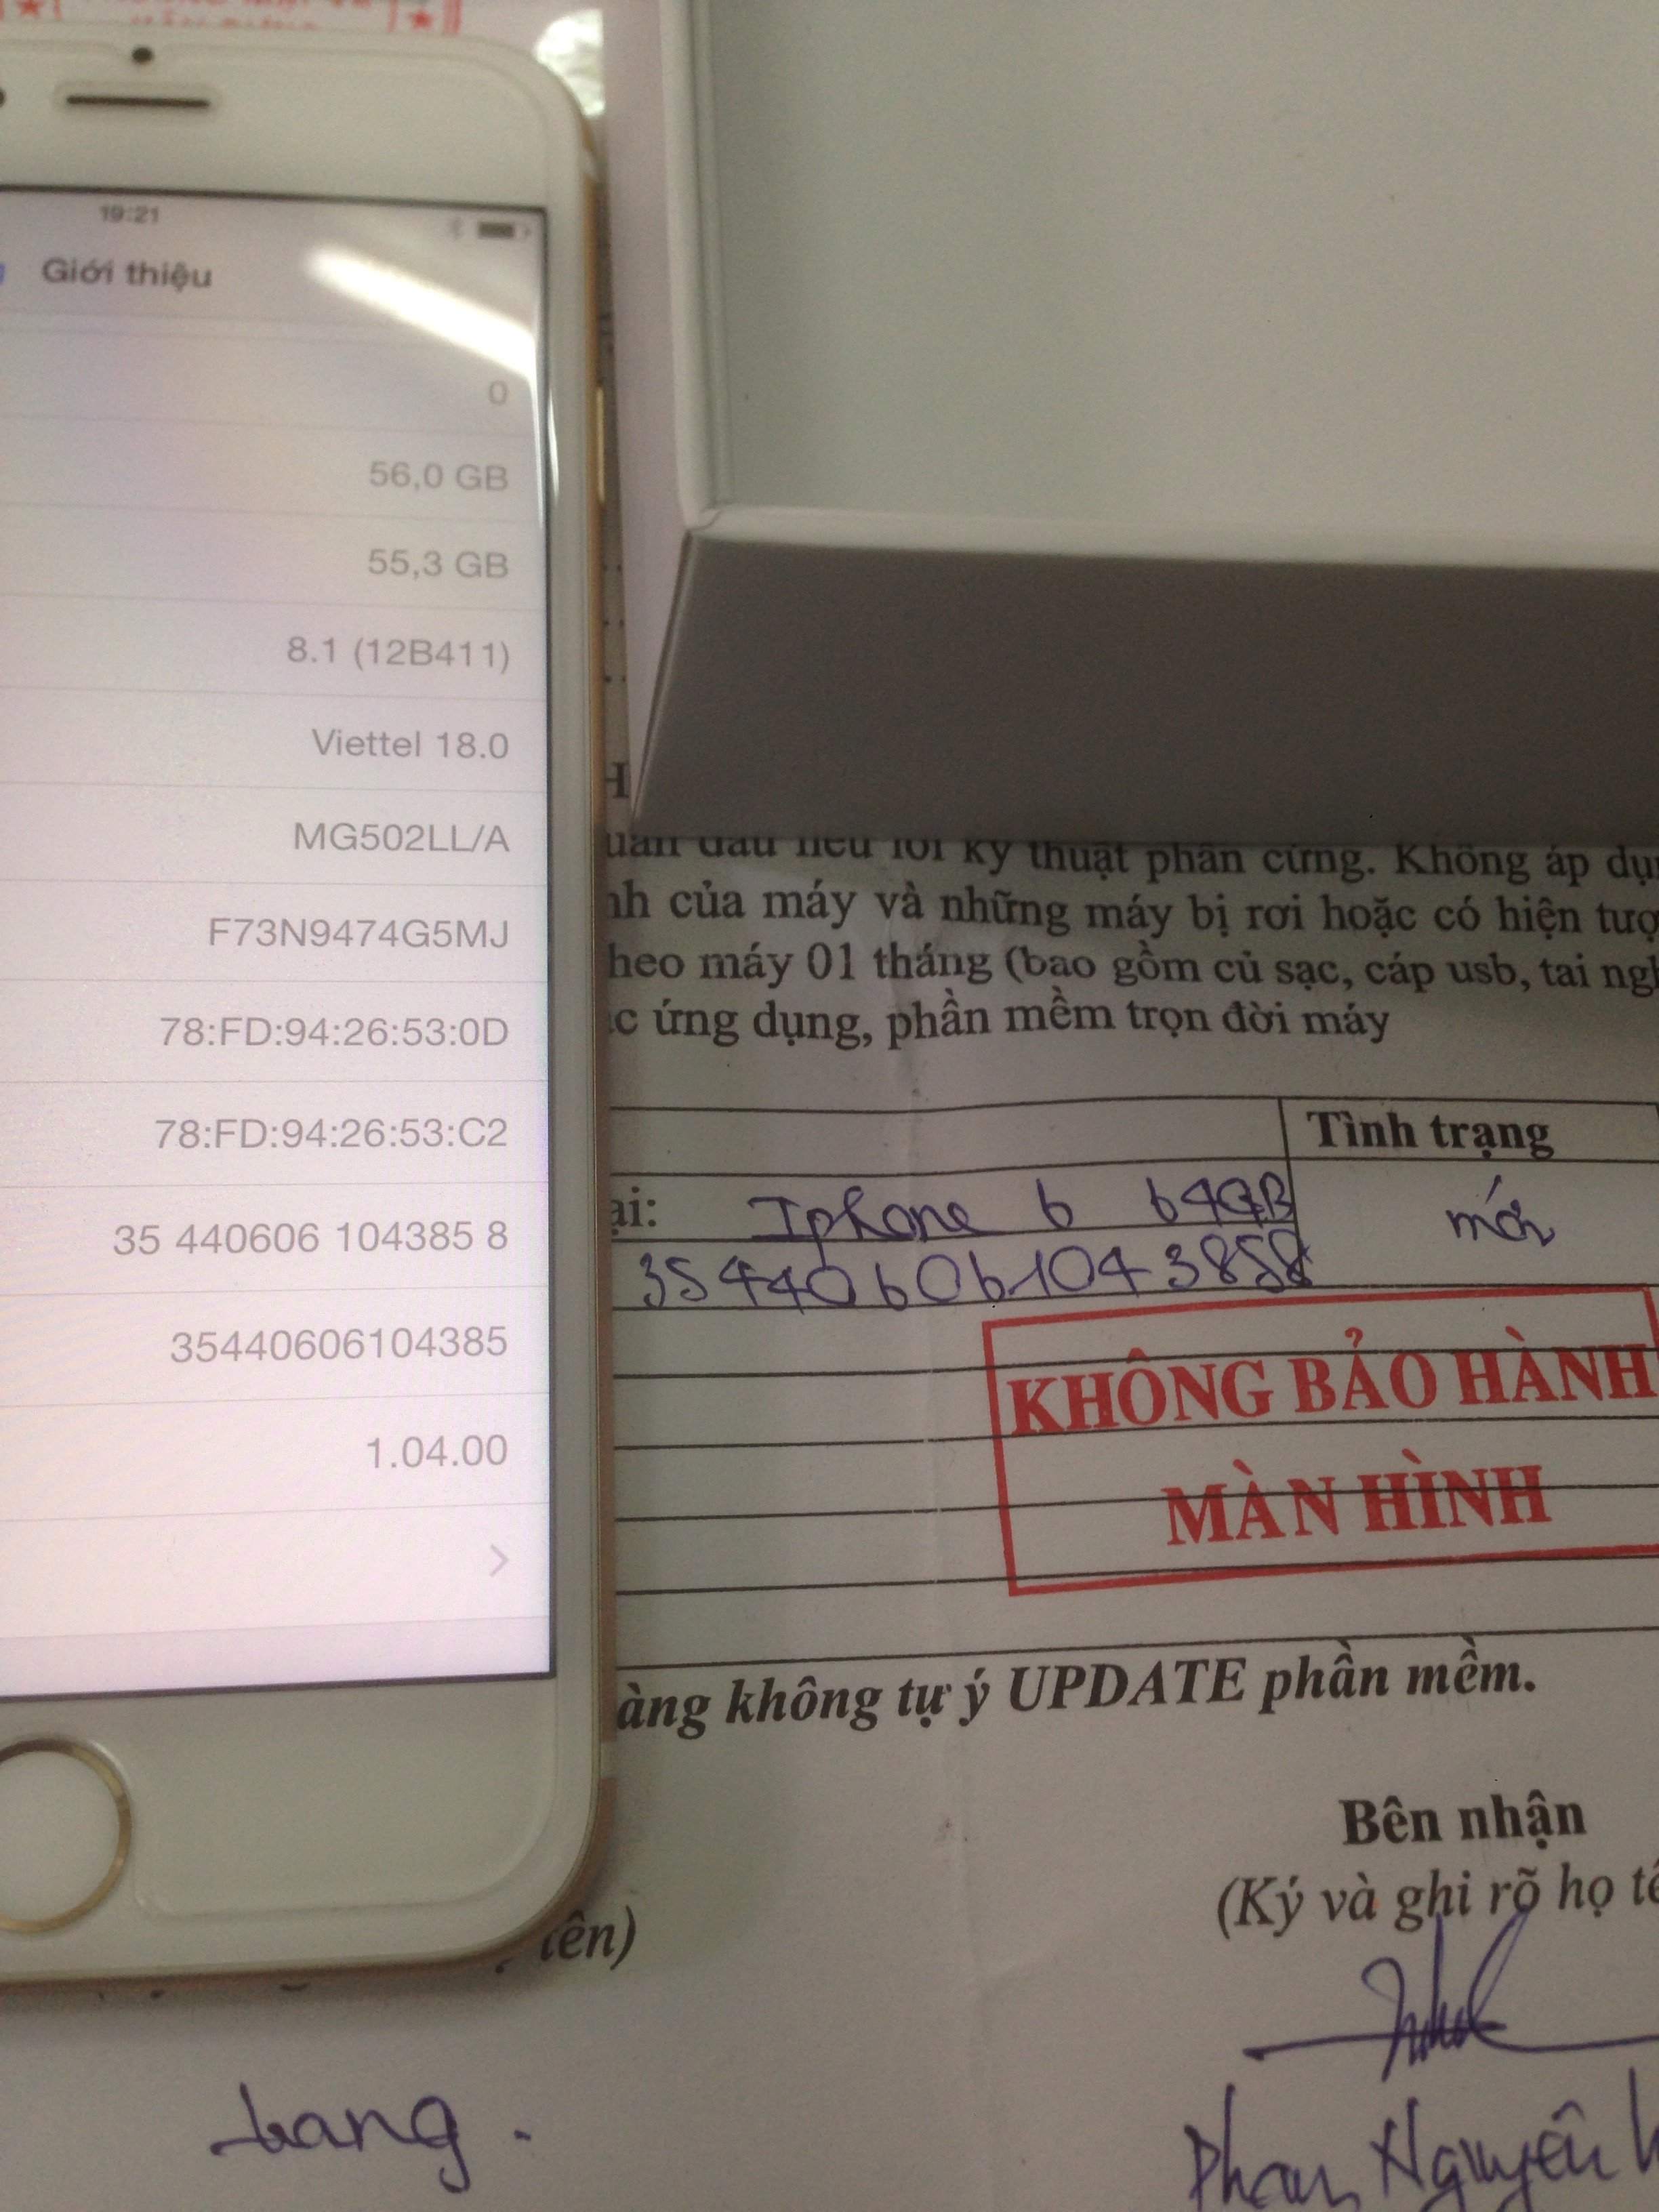 19:21
Giới thiệu
0
56,0 GB
55,3 GB
8.1 (12B411)
Viettel 18.0
MG502LL/A
F73N9474G5MJ
78:FD:94:26:53:0D
78:FD:94:26:53:C2
35 440606 104385 8
35440606104385
1.04.00
kỹ thuật phần cứng. Không áp
của máy và những máy bị rơi hoặc có hiện
máy 01 tháng (bao gồm củ sạc, cáp usb, tai
ứng dụng, phần mềm trọn đời máy
Tình trạng
Iphone 6 64GB
mới
354406061043858
KHÔNG BẢO HÀNH
MÀN HÌNH
không tự ý UPDATE phần mềm.
Bên nhận
(Ký và ghi rõ họ
Phan Nguyên